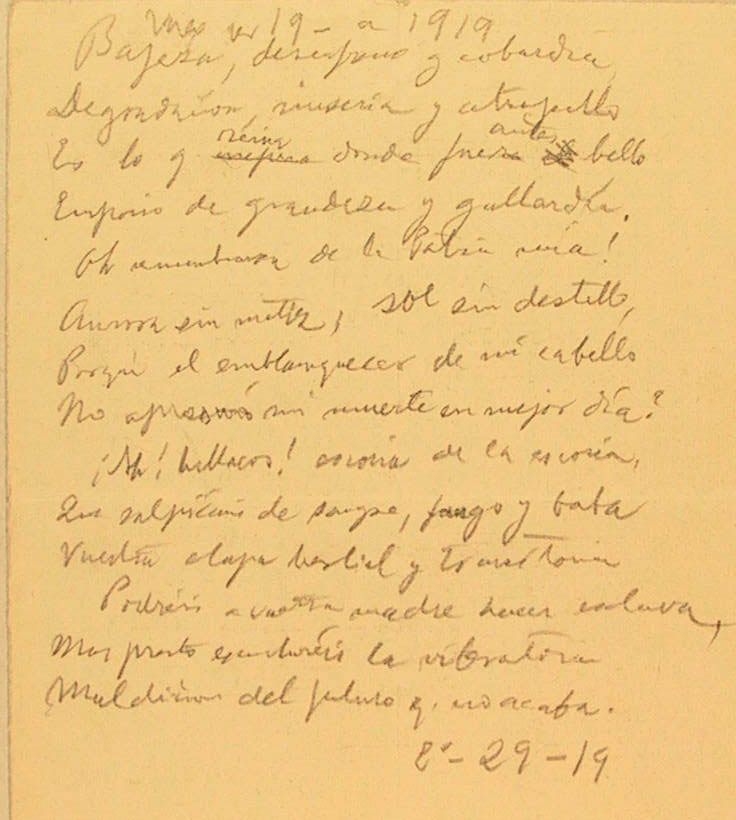 19 - a 1919
Bajeza, desenfreno y cobardía,
Degradación, miseria y atropello
Es lo q reina donde fuera antes bello
Emporio de grandeza y gallardía.
Oh remembranza de la Patria mía!
Aurora sin matiz, sol sin destello,
Porqué el emblanquecer de mi cabello
No apresuró mi muerte en mejor día?
¡Ah! bellacos! escoria de la escoria,
Que salpicáis de sangre, fango y baba
Vuestra etapa bestial y transitoria
Podréis a vuestra madre hacer esclava,
Mas presto escucharéis la vibratoria
Maldición del futuro q. no acaba.
29-19